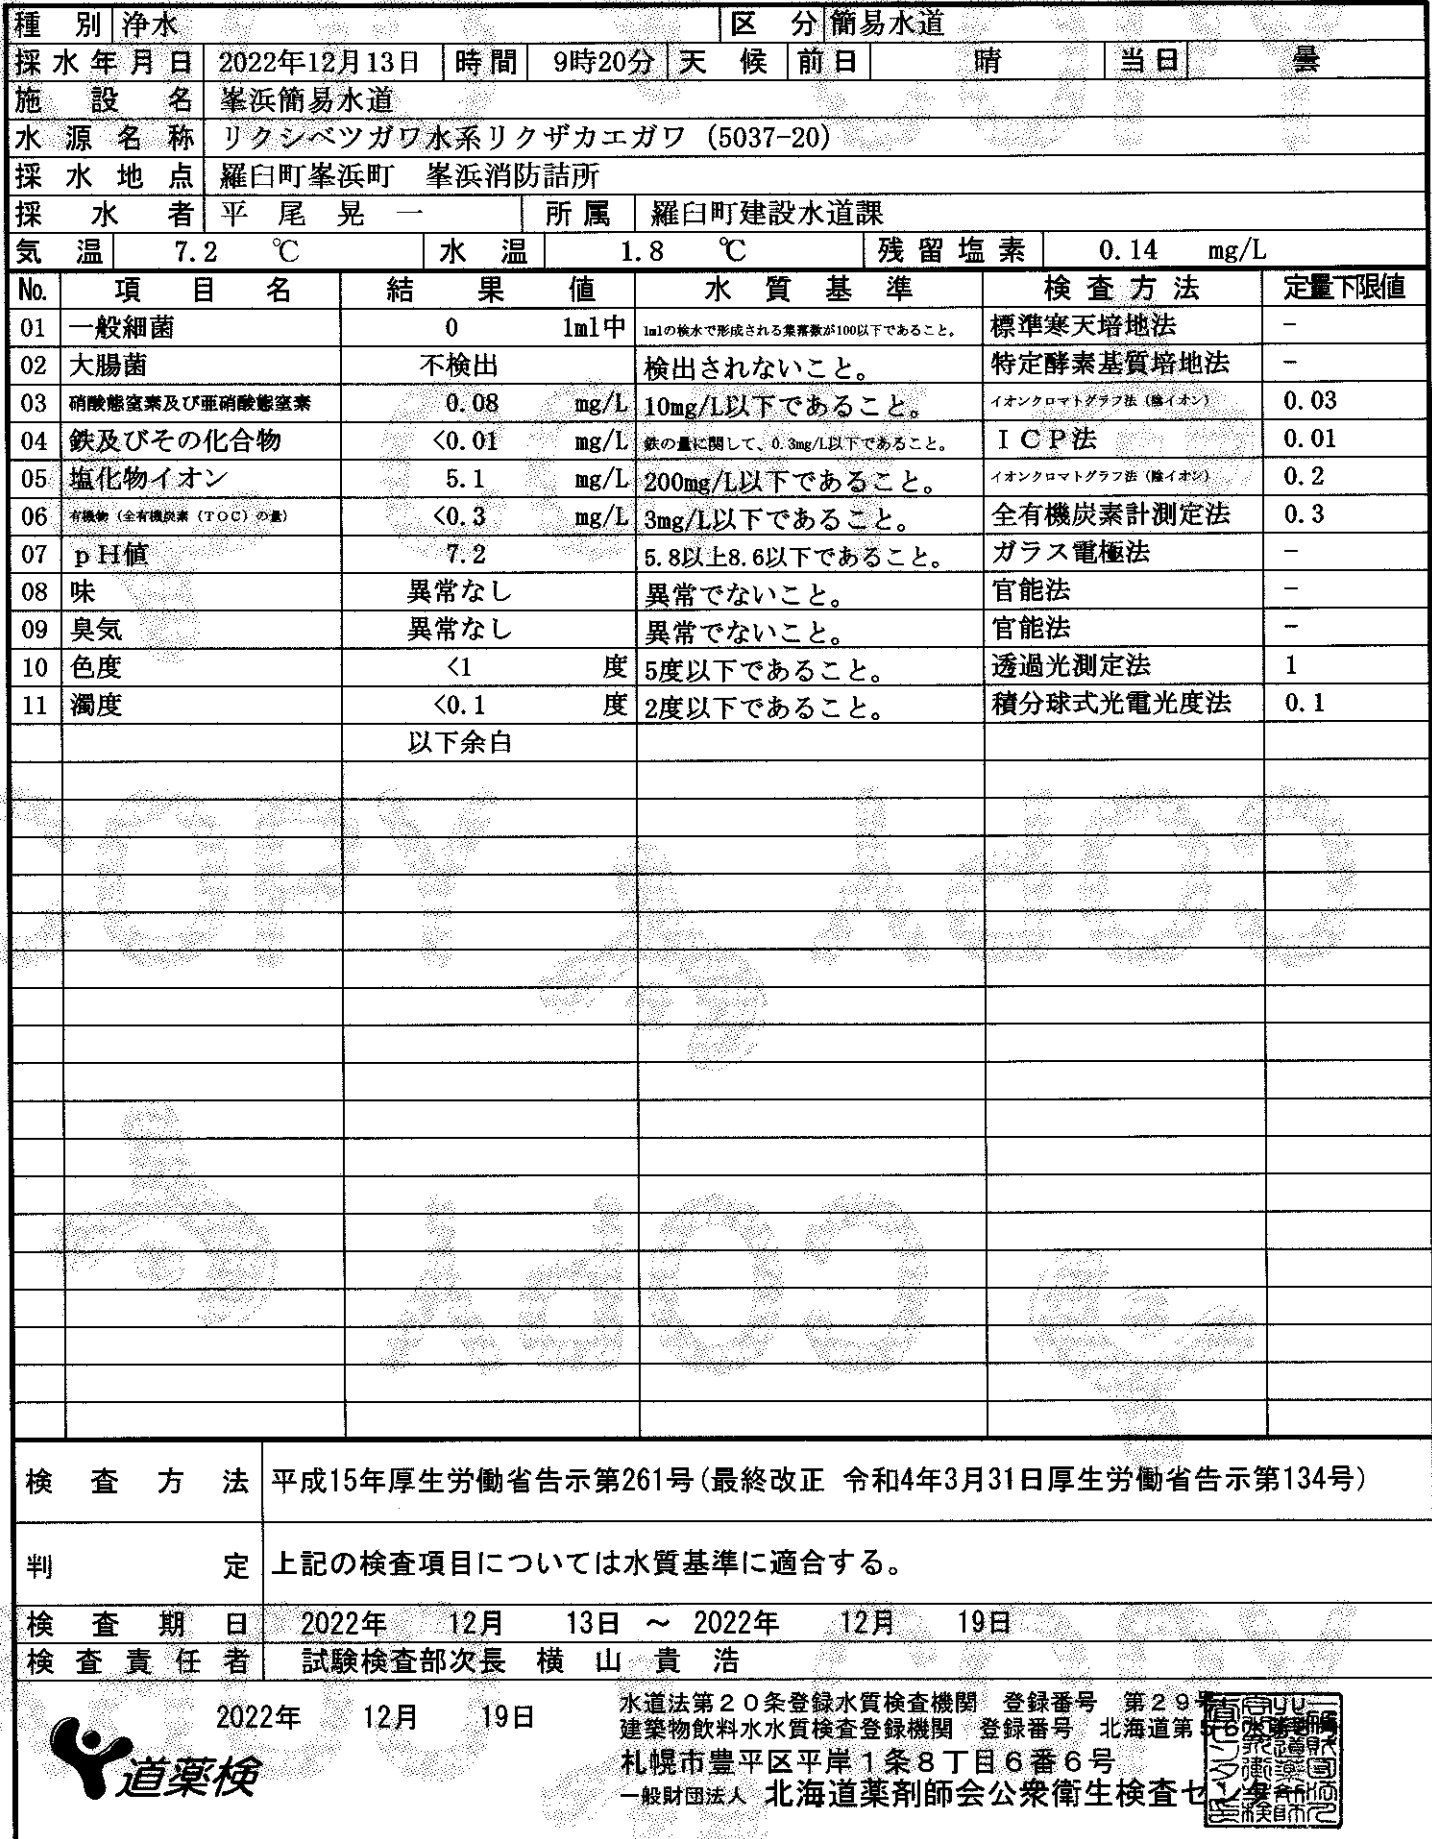 種別 浄水 区分 簡易水道
採水年月日 2022年12月13日 時間 9時20分 天候 前日 晴 当日 曇
施設名 峯浜簡易水道
水源名称 リクシベツガワ水系リクザカエガワ (5037-20)
採水地点 羅臼町峯浜町 峯浜消防詰所
採水者 平尾晃一 所属 羅臼町建設水道課
気温 7.2 ℃ 水温 1.8 ℃ 残留塩素 0.14 mg/L
No. 項目名 結果値 水質基準 検査方法 定量下限値
01 一般細菌 0 1ml中 1mlの検水で形成される集落数が100以下であること。 標準寒天培地法 -
02 大腸菌 不検出 検出されないこと。 特定酵素基質培地法 -
03 硝酸態窒素及び亜硝酸態窒素 0.08 mg/L 10mg/L以下であること。 イオンクロマトグラフ法（陰イオン） 0.03
04 鉄及びその化合物 <0.01 mg/L 鉄の量に関して、0.3mg/L以下であること。 ICP法 0.01
05 塩化物イオン 5.1 mg/L 200mg/L以下であること。 イオンクロマトグラフ法（陰イオン） 0.2
06 有機物（全有機炭素（TOC）の量） <0.3 mg/L 3mg/L以下であること。 全有機炭素計測定法 0.3
07 pH値 7.2 5.8以上8.6以下であること。 ガラス電極法 -
08 味 異常なし 異常でないこと。 官能法 -
09 臭気 異常なし 異常でないこと。 官能法 -
10 色度 <1 度 5度以下であること。 透過光測定法 1
11 濁度 <0.1 度 2度以下であること。 積分球式光電光度法 0.1
以下余白
COPY COPY
COPY
検査方法 平成15年厚生労働省告示第261号(最終改正 令和4年3月31日厚生労働省告示第134号)
判定 上記の検査項目については水質基準に適合する。
検査期日 2022年 12月 13日 ～ 2022年 12月 19日
検査責任者 試験検査部次長 横山貴浩
2022年 12月 19日
道薬検
水道法第20条登録水質検査機関 登録番号 第29号
建築物飲料水水質検査登録機関 登録番号 北海道第
札幌市豊平区平岸1条8丁目6番6号
一般財団法人 北海道薬剤師会公衆衛生検査センター